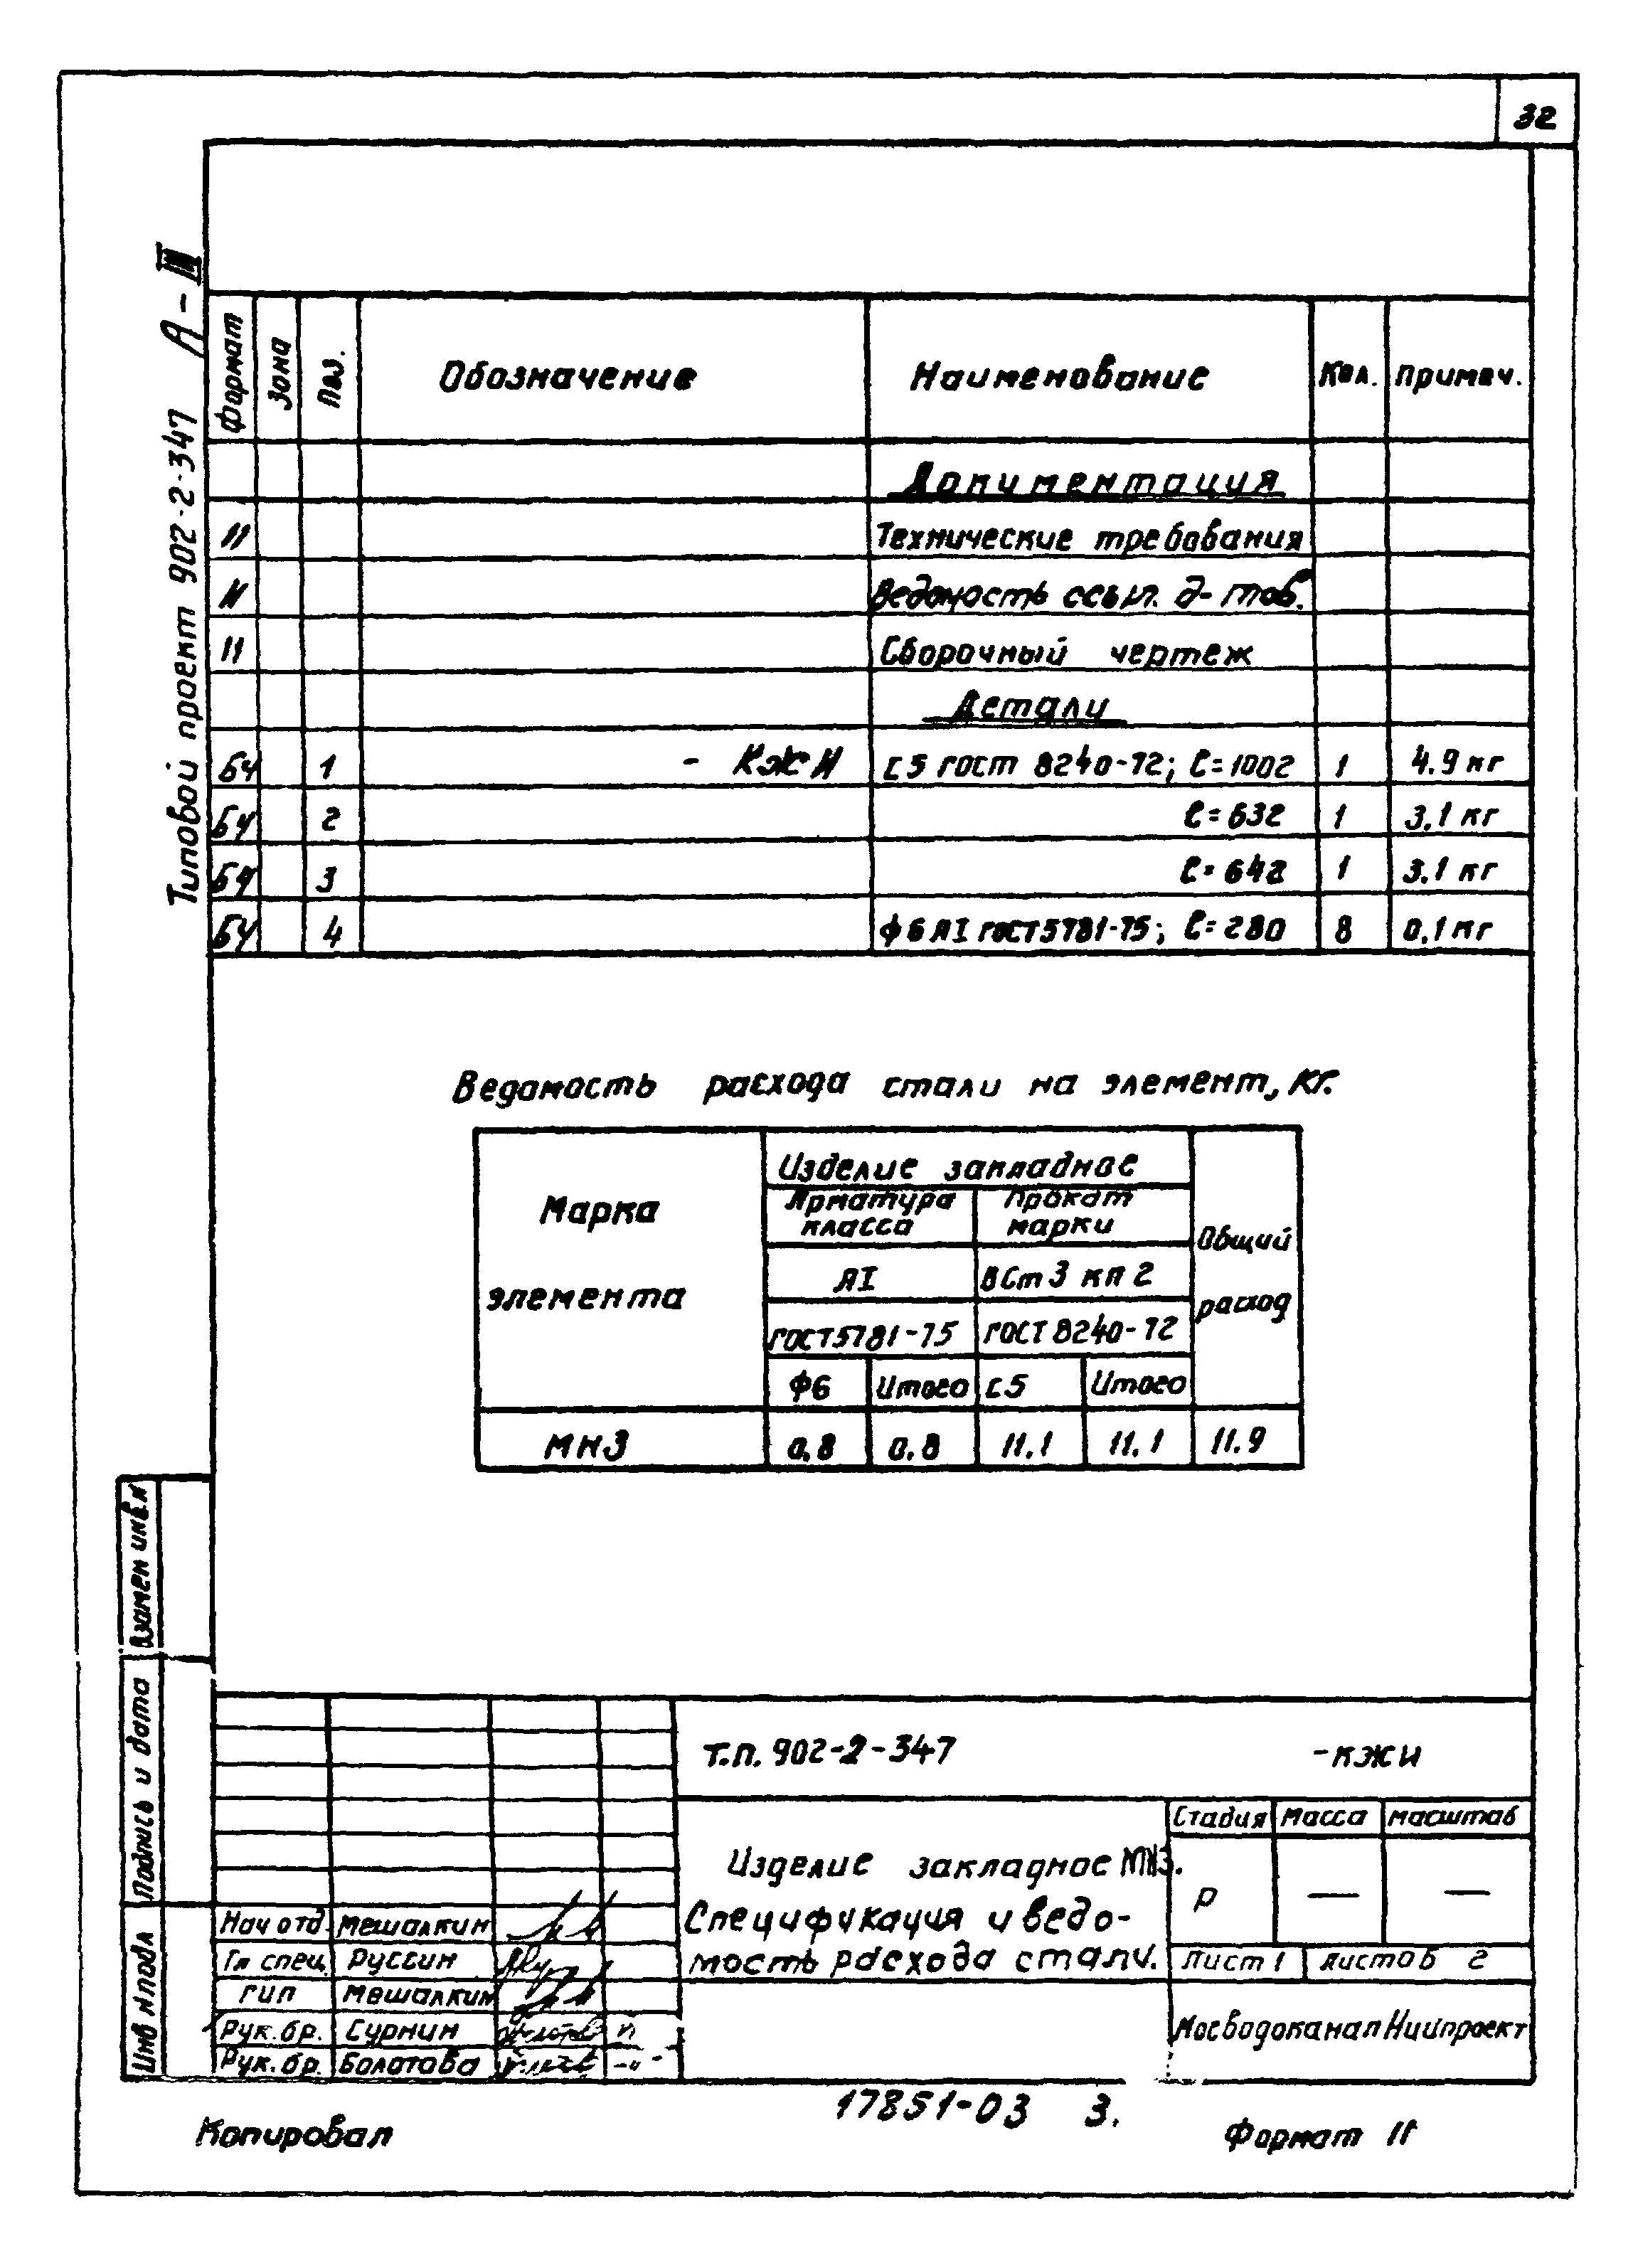 32
Типовой проект 902-2-347 А-III
Формат Зона Поз. Обозначение Наименование Кол. Примеч.
Документация
11 Технические требования
11 Ведомость ссыл. д-тов.
11 Сборочный чертеж
Детали
БЧ 1 - КЖИ С5 ГОСТ 8240-72; ℓ=1002 1 4.9 кг
БЧ 2 ℓ=632 1 3.1 кг
БЧ 3 ℓ=642 1 3.1 кг
БЧ 4 ф6 АI ГОСТ 5781-75; ℓ=280 8 0.1 кг
Ведомость расхода стали на элемент, кг.
Марка элемента
Изделие закладное
Арматура класса
Прокат марки
Общий расход
АI ВСт 3 кп 2
ГОСТ 5781-75 ГОСТ 8240-72
ф6 Итого С5 Итого
МН3 0.8 0.8 11.1 11.1 11.9
Взамен инв.N
Подпись и дата
Инв N подл
т.п. 902-2-347 -КЖИ
Изделие закладное МН3.
Спецификация и ведо-
мость расхода стали.
Стадия Масса Масштаб
Р — —
Лист 1 Листов 2
Нач отд. Мешалкин
Гл спец. Руссин
ГИП Мешалкин
Рук.бр. Сурнин
Рук.бр. Болотова
МосводоканалНИИпроект
17851-03 3.
Копировал
Формат 11